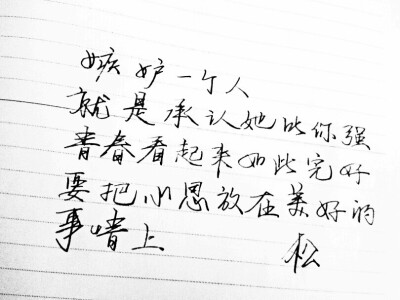 嫉妒一个人
就是承认她比你强
青春看起来如此完好
要把心思放在美好的
事情上
松